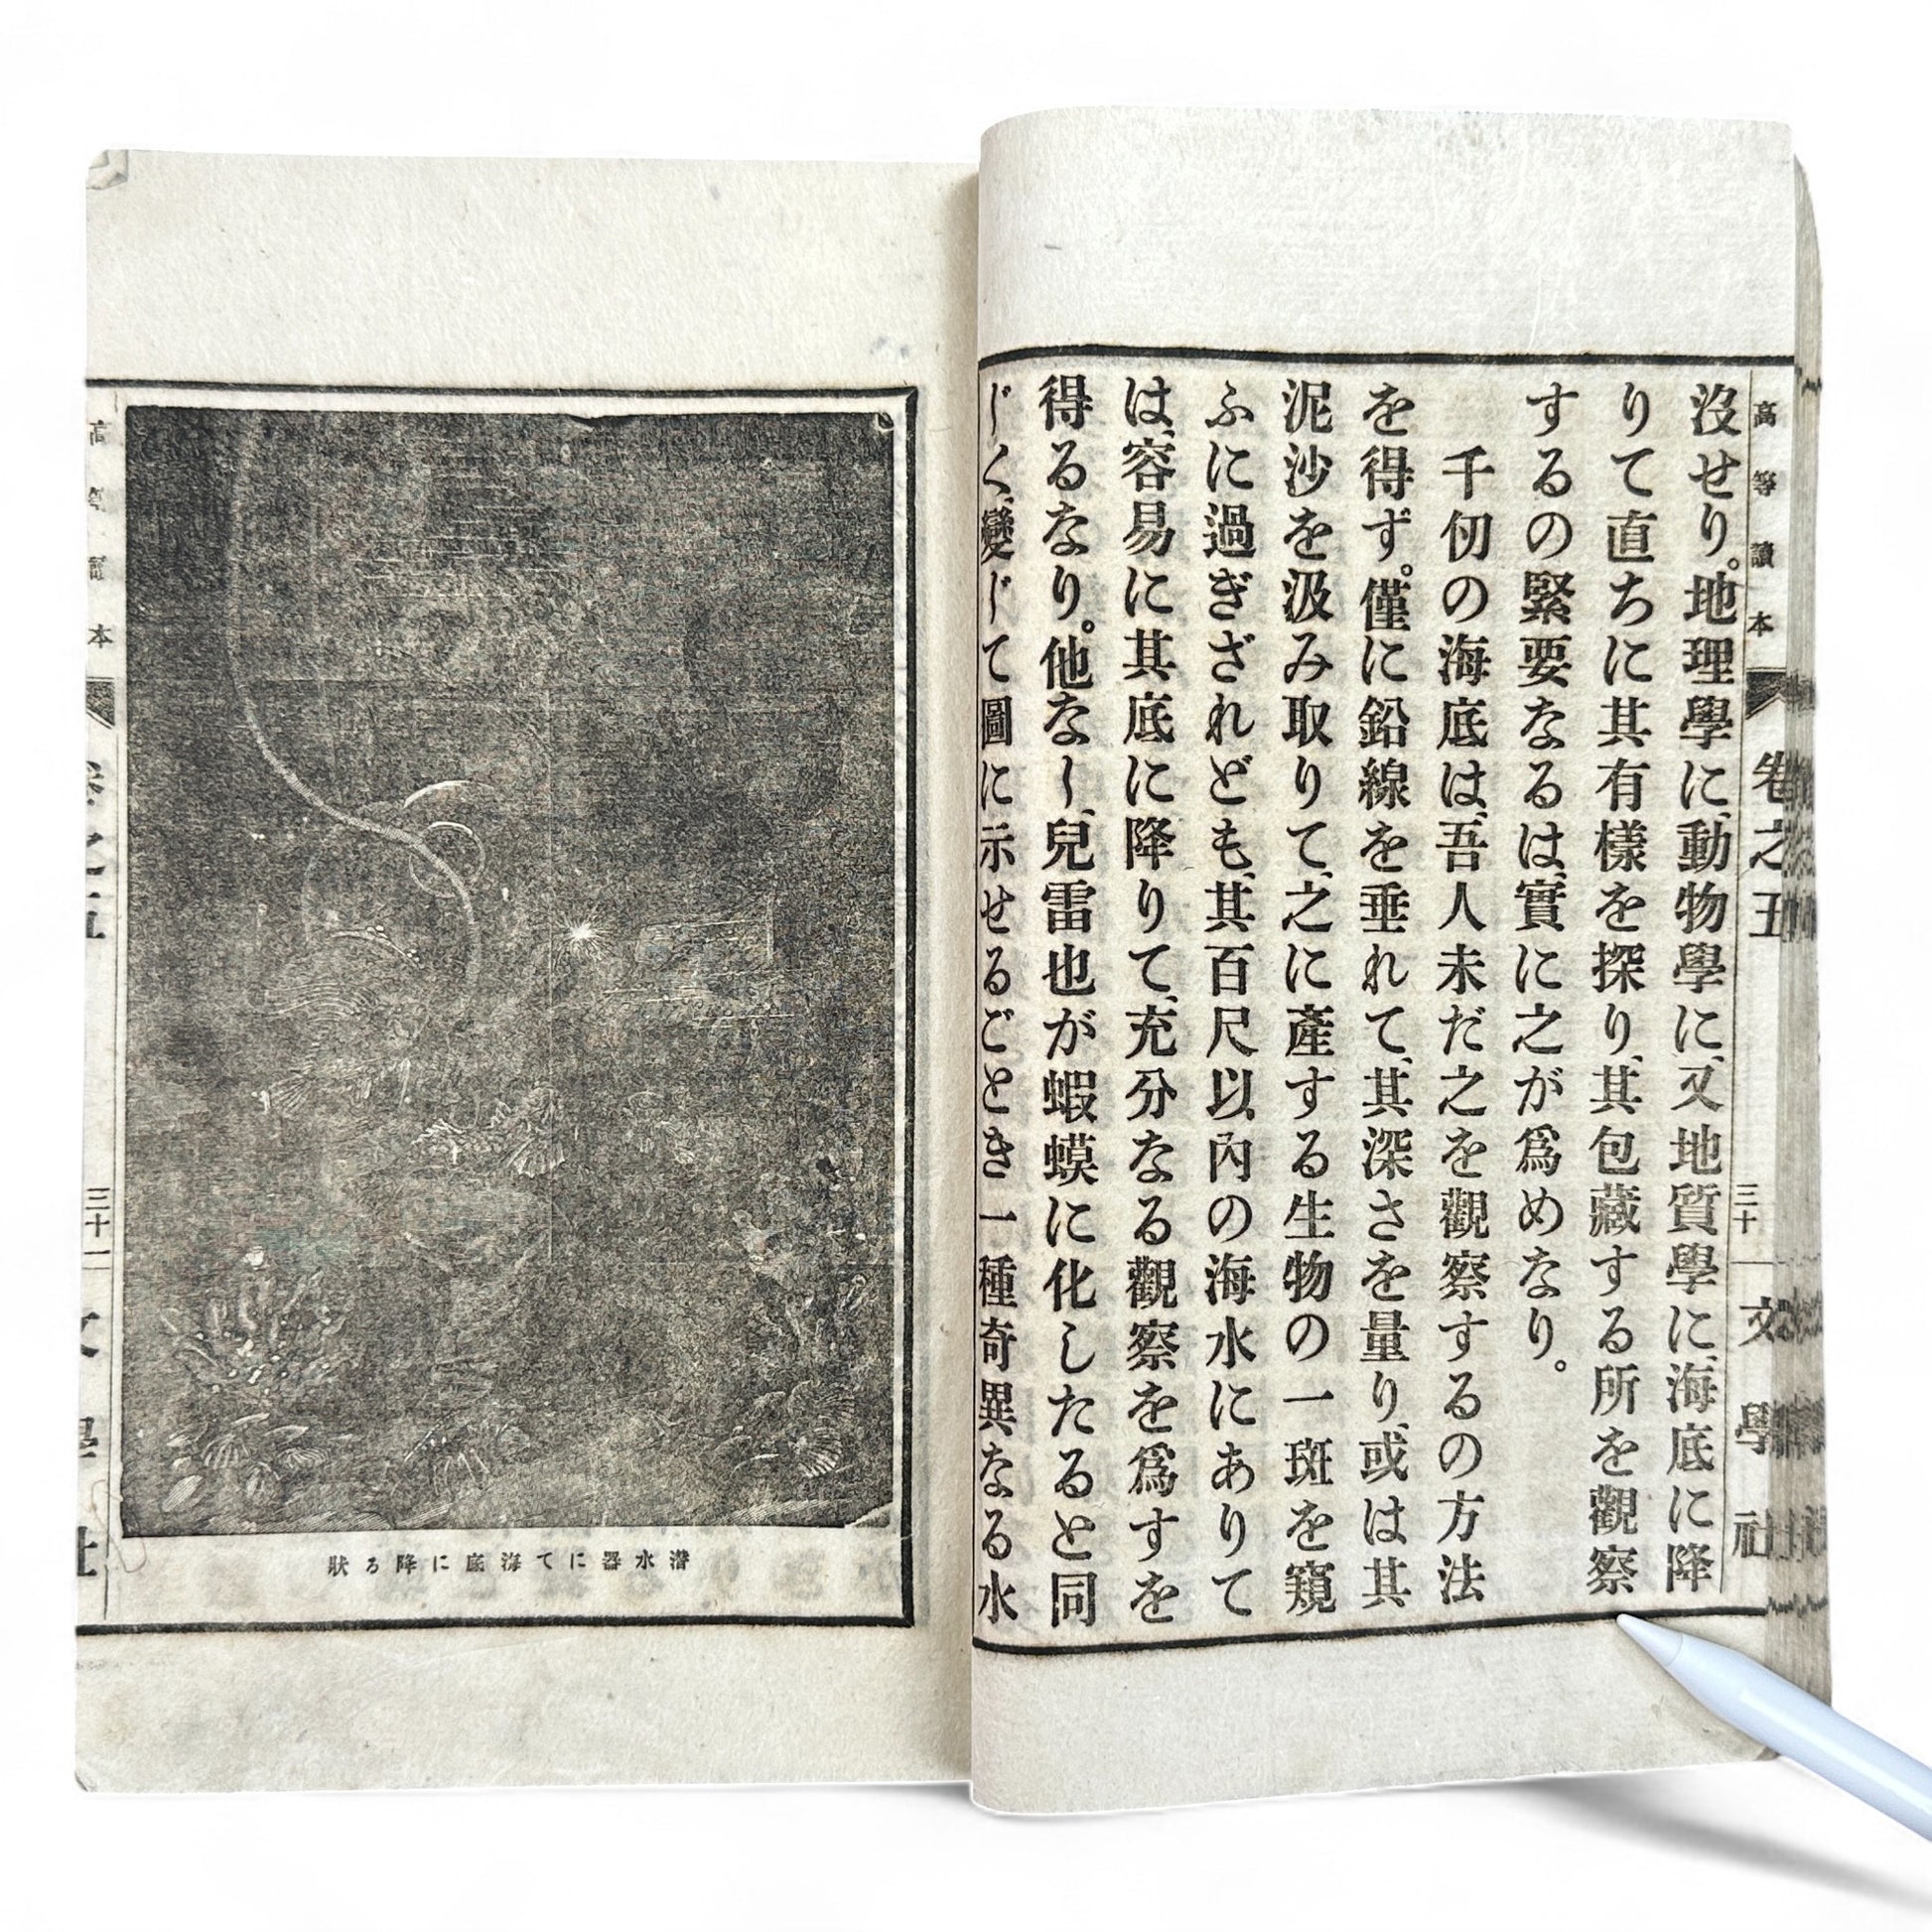 高等讀本
卷之五
三十
文學社
沒せり。地理學に、動物學に、又地質學に、海底に降
りて直ちに其有樣を探り、其包藏する所を觀察
するの緊要なるは、實に之が爲めなり。
千仞の海底は、吾人未だ之を觀察するの方法
を得ず。僅に鉛線を垂れて、其深さを量り、或は其
泥沙を汲み取りて、之に產する生物の一斑を窺
ふに過ぎざれども、其百尺以內の海水にありて
は、容易に其底に降りて、充分なる觀察を爲すを
得るなり。他なし、兒雷也が蝦蟆に化したると同
じく、變じて圖に示せるごとき一種奇異なる水
潛水器にて海底に降る狀
高等讀本
卷之五
三十一
文學社